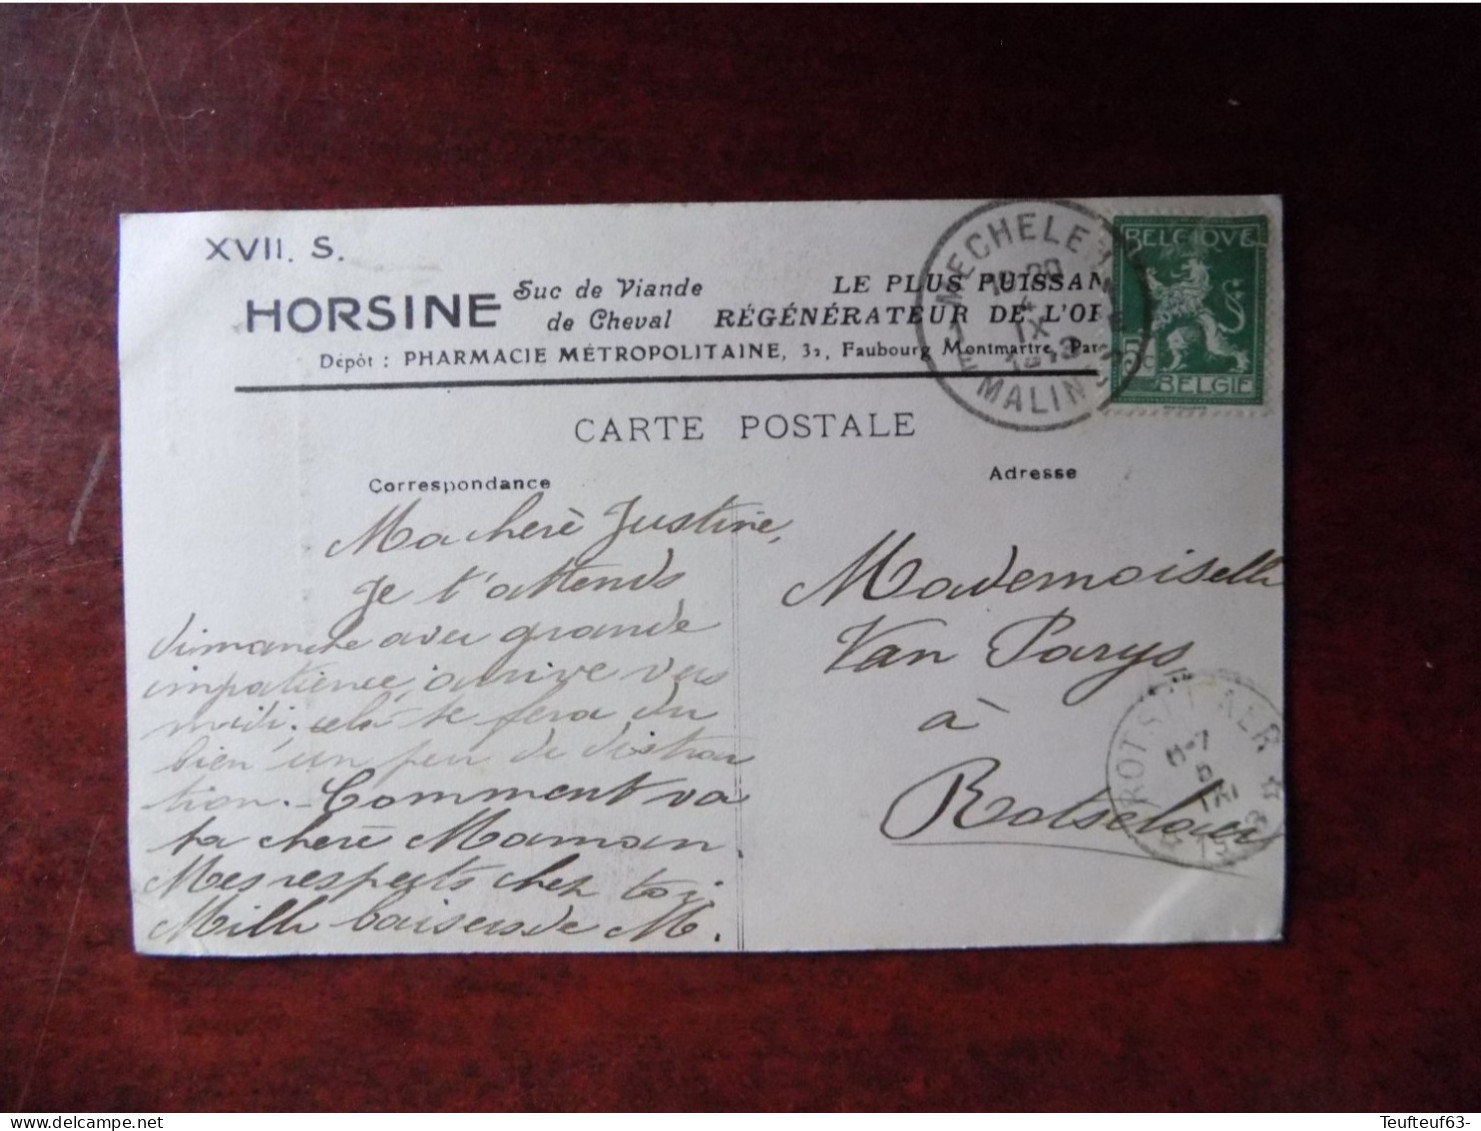 XVII. S.
HORSINE Suc de Viande de Cheval
LE PLUS PUISSAN
RÉGÉNÉRATEUR DE L'OR
Dépôt : PHARMACIE MÉTROPOLITAINE, 32, Faubourg Montmartre, Par
MECHELEN
IX
MALINES
BELGIQUE
5c
BELGIE
CARTE POSTALE
Correspondance
Ma cherè Justine,
Je t'attends
dimanche avec grande
impatience, arrive vers
midi, celà te fera du
bien un peu de distrac
tion. - Comment va
ta cherè Maman.
Mes respects chez toi
Mille baisers de M.
Adresse
Mademoiselle
Van Parys
à
Rotselaer
ROTSELAER
Teufteuf63-